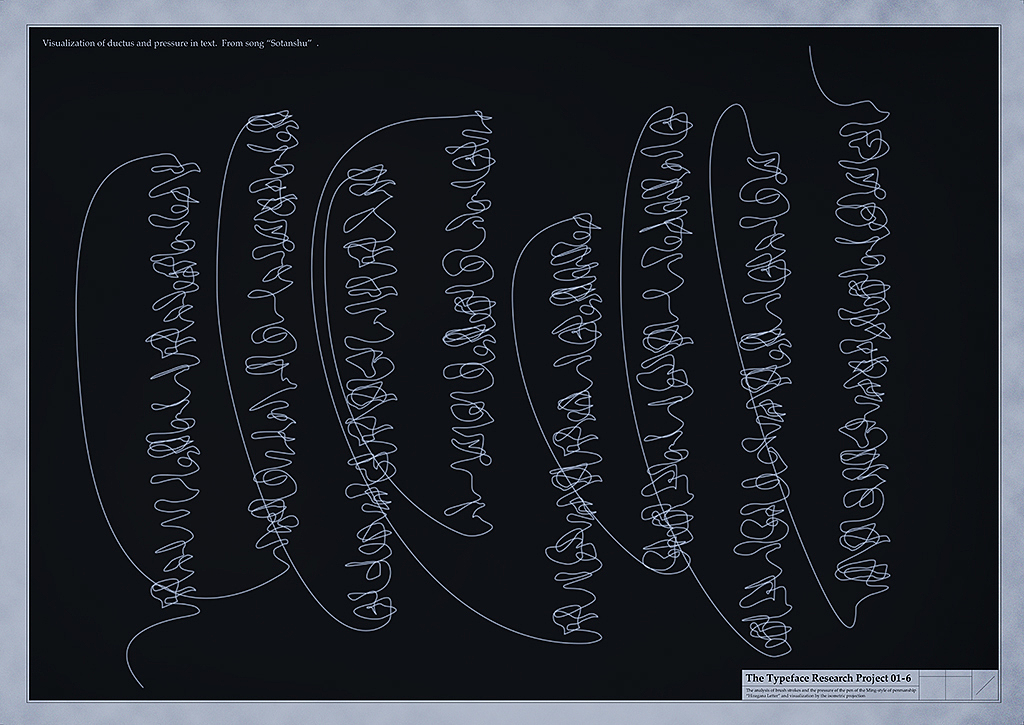 Visualization of ductus and pressure in text. From song “Sotanshu” .
The Typeface Research Project 01-6
The analysis of brush strokes and the pressure of the pen of the Ming style of penmanship
“Hiragana Letter” and visualization by the isometric projection.